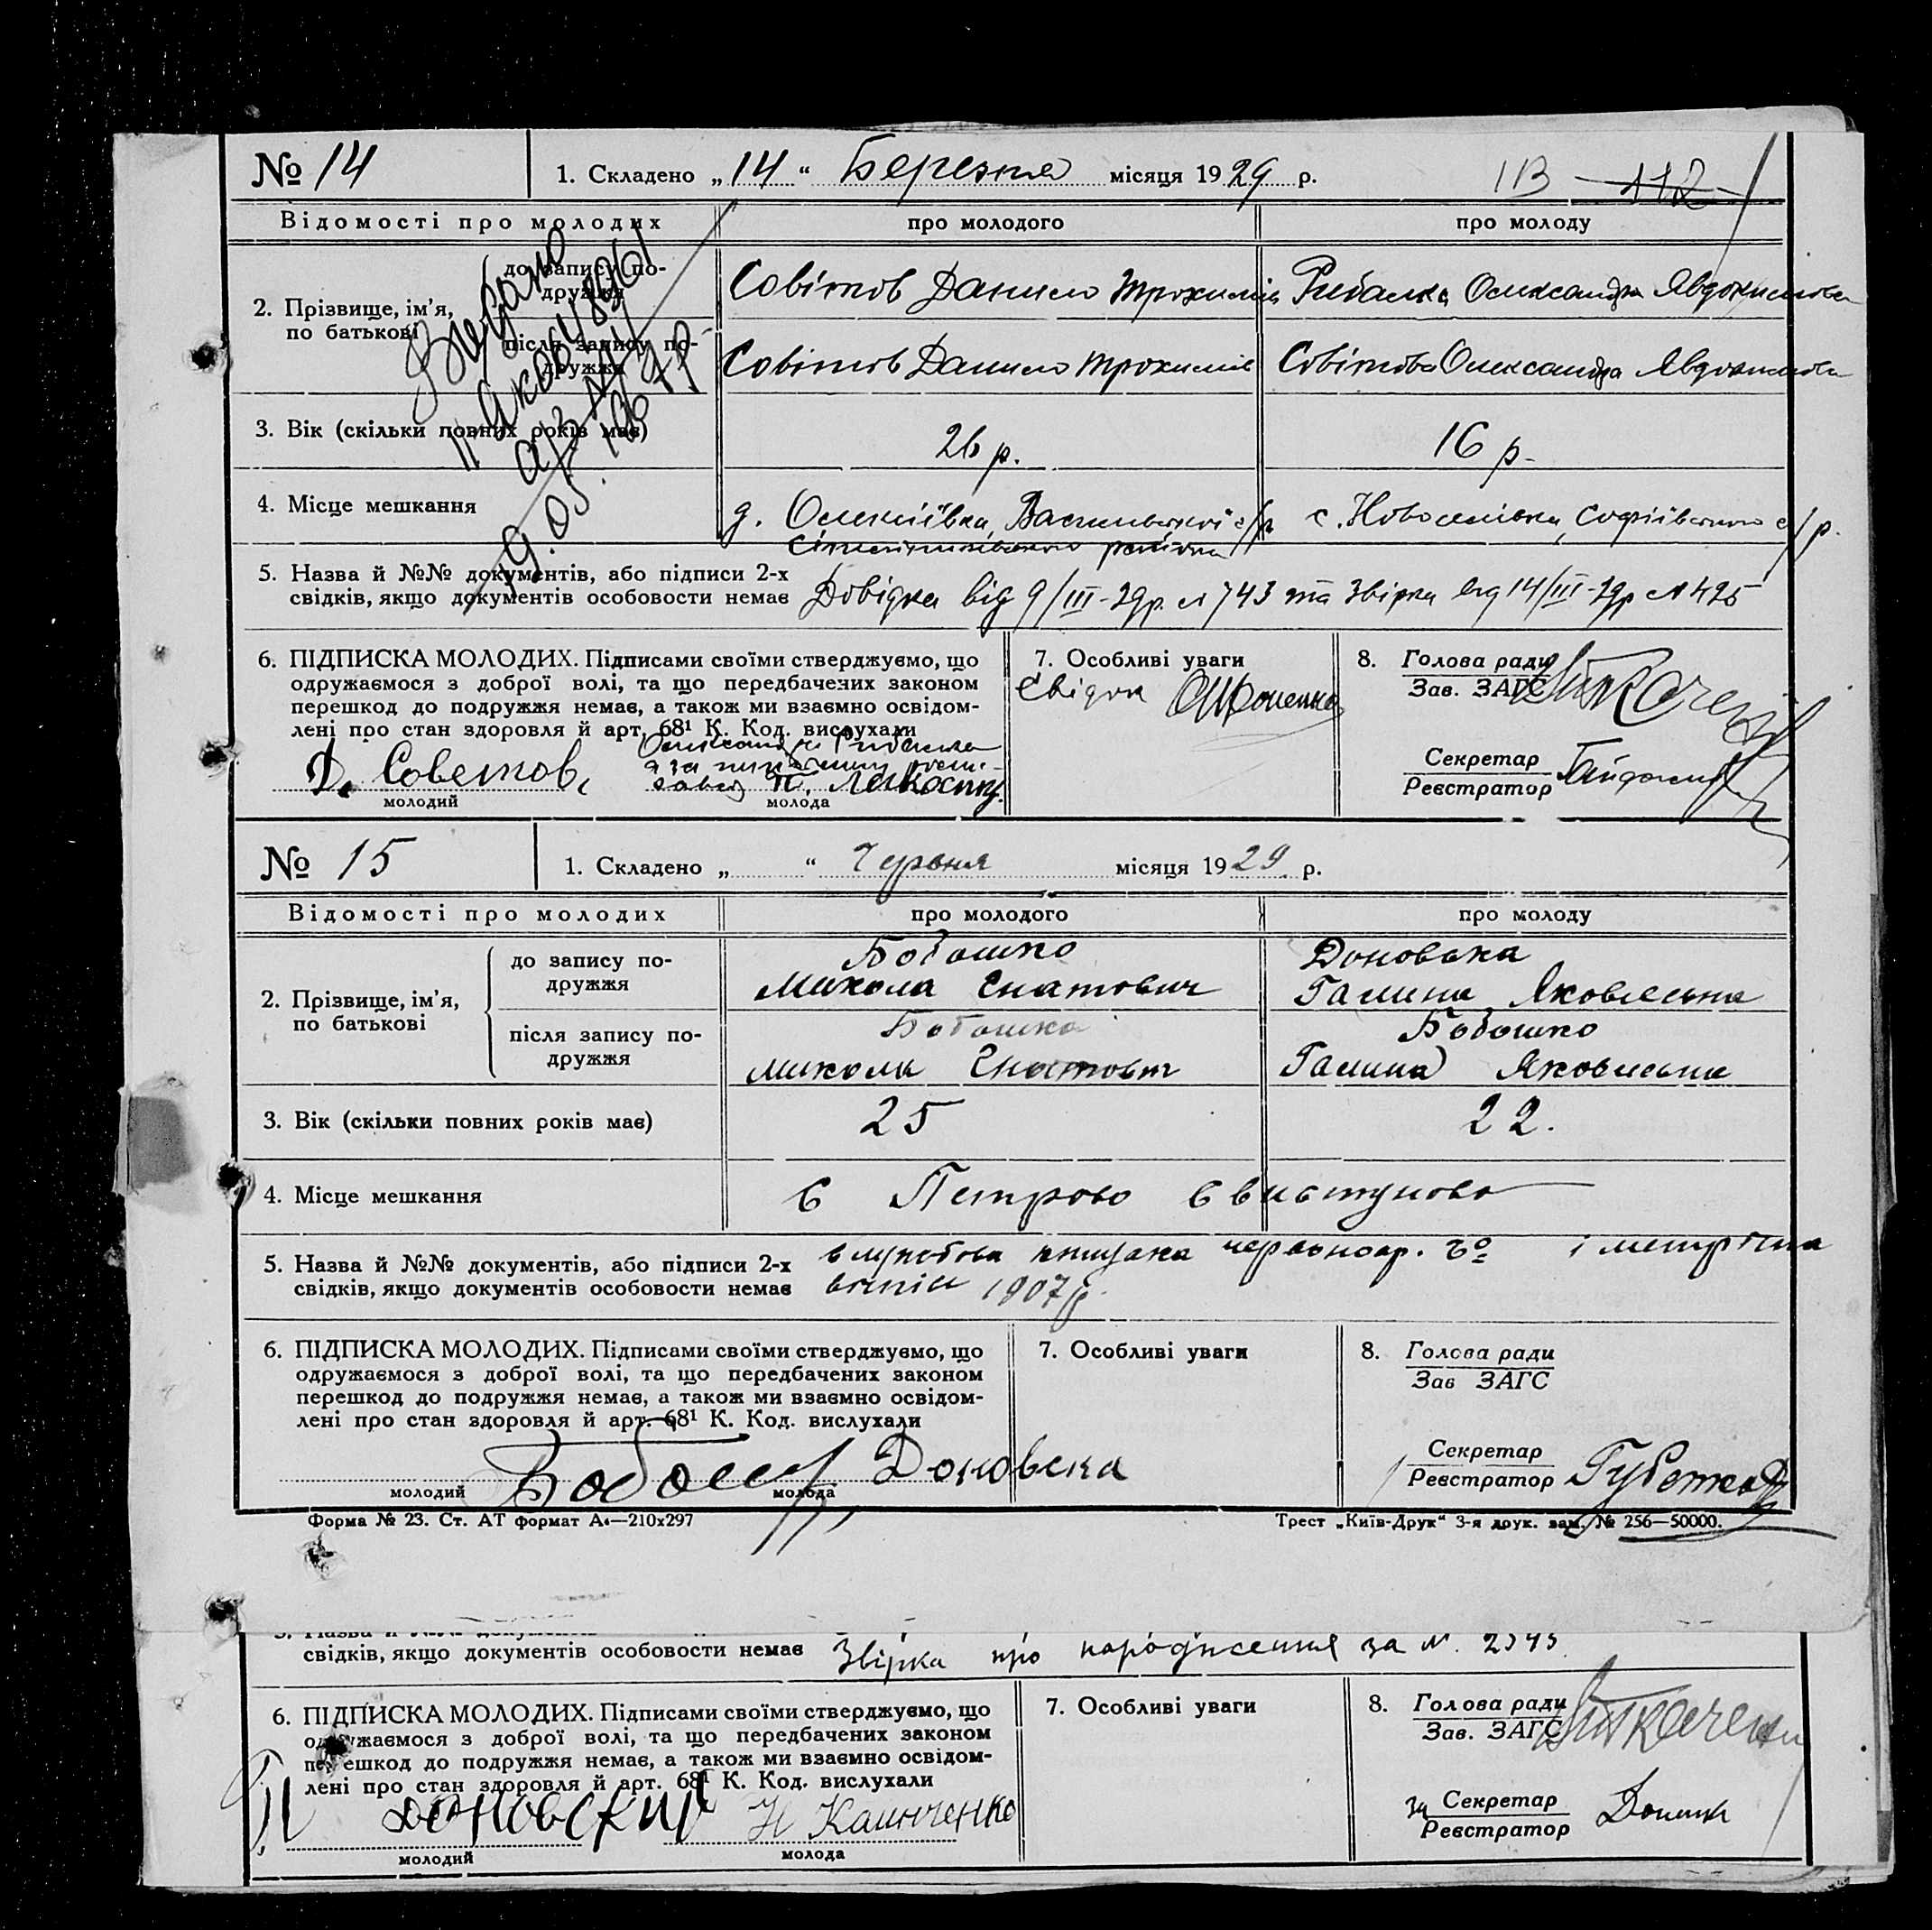 № 14
1. Складено „14“ Березня місяця 1929 р.
113 112
Відомості про молодих
про молодого
про молоду
2. Прізвище, ім’я, по батькові
до запису подружжя
Совітов Данило Трохимів
Рибалка Олександра Явдокимова
після запису подружжя
Совітов Данило Трохимів
Совітова Олександра Явдокимова
Видано
19.05.
3. Вік (скільки повних років має)
26 р.
16 р.
4. Місце мешкання
д. Олексіївка, Васильевської с/р
с. Новоселівка, Софіївського с/р.
району
5. Назва й №№ документів, або підписи 2-х
свідків, якщо документів особовости немає
Довідка від 9/III-29р. № 743 та Звірка від 14/III-29р № 425
6. ПІДПИСКА МОЛОДИХ. Підписами своїми стверджуємо, що
одружаємося з доброї волі, та що передбачених законом
перешкод до подружжя немає, а також ми взаємно освідом-
лені про стан здоровля й арт. 68¹ К. Код. вислухали
Д. Советов
Олександра Рибалка
а за
молодий
молода
7. Особливі уваги
Свідок
8. Голова ради
Зав. ЗАГС
Секретар
Реєстратор
№ 15
1. Складено „ “ Червня місяця 1929 р.
Відомості про молодих
про молодого
про молоду
2. Прізвище, ім’я, по батькові
до запису подружжя
Бобошко
Микола Гнатович
Доновська
Галина Яковлевна
після запису подружжя
Бобошко
Микола Гнатович
Бобошко
Галина Яковлевна
3. Вік (скільки повних років має)
25
22.
4. Місце мешкання
с Петрово Свистуново
5. Назва й №№ документів, або підписи 2-х
свідків, якщо документів особовости немає
служебова книжка червоноар. і метрична
1907 р.
6. ПІДПИСКА МОЛОДИХ. Підписами своїми стверджуємо, що
одружаємося з доброї волі, та що передбачених законом
перешкод до подружжя немає, а також ми взаємно освідом-
лені про стан здоровля й арт. 68¹ К. Код. вислухали
Доновска
молодий
молода
7. Особливі уваги
8. Голова ради
Зав ЗАГС
Секретар
Реєстратор
Форма № 23. Ст. АТ формат А4—210x297
Трест „Київ-Друк“ 3-я друк. зам. № 256—50000.
свідків, якщо документів особовости немає
Звірка про народження за №. 2545
6. ПІДПИСКА МОЛОДИХ. Підписами своїми стверджуємо, що
одружаємося з доброї волі, та що передбачених законом
перешкод до подружжя немає, а також ми взаємно освідом-
лені про стан здоровля й арт. 68¹ К. Код. вислухали
Доновский
Н Калиниченко
молодий
молода
7. Особливі уваги
8. Голова ради
Зав. ЗАГС
за Секретар
Реєстратор